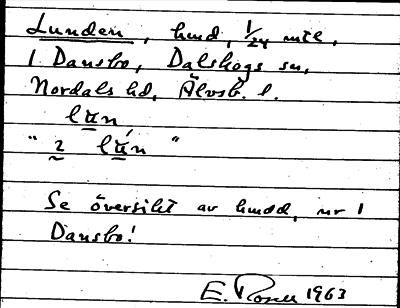 Lunden, hmd, 1/24 mtl,
1 Dansbo, Dalskogs sn,
Nordals hd, Älvsb. l.
lu̲n,
" 2 lú̲n "
Se översikt av hmdd, nr 1
Dansbo!
E. Rosell 1963